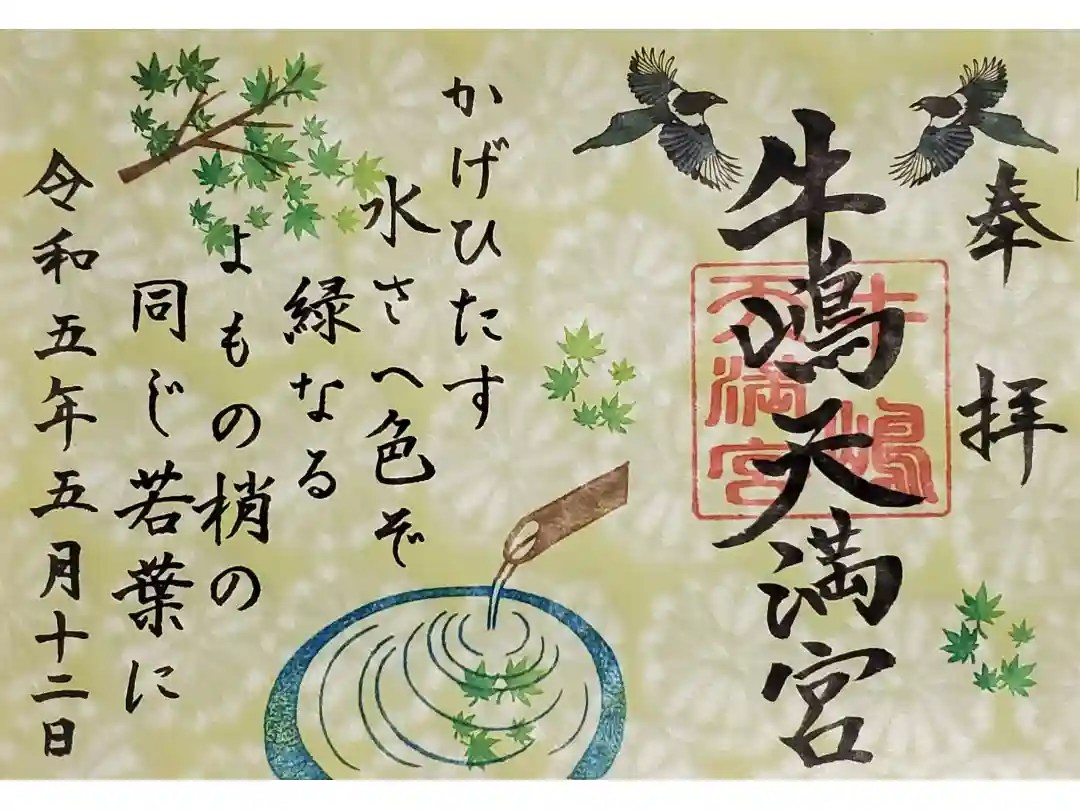 奉拝
牛嶋天満宮
牛嶋
天満宮
かげひたす
水さへ色ぞ
緑なる
よもの梢の
同じ若葉に
令和五年五月十二日